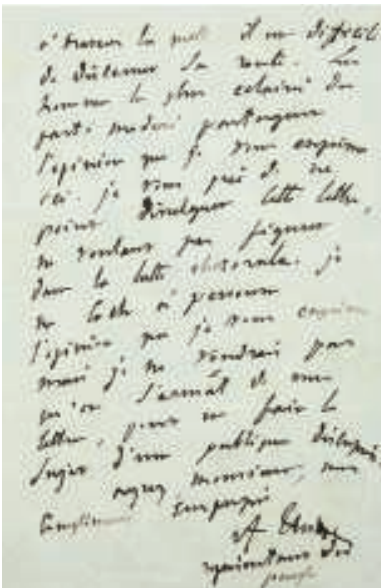 la nuit il me difficile
de discerner la route. Les
hommes le plus éclairé du
parti modéré partagent
l'opinion que je vous exprime
ici. je vous prie de ne
point divulguer cette lettre,
ne voulant pas figurer
dans la lutte électorale. je
ne cache à personne
l'opinion que je vous exprime
mais je ne voudrais pas
qu'on s'armât de ma
lettre, pour en faire le
sujet d'une publique
agréez monsieur, mes
compliments
A
représentant du
peuple